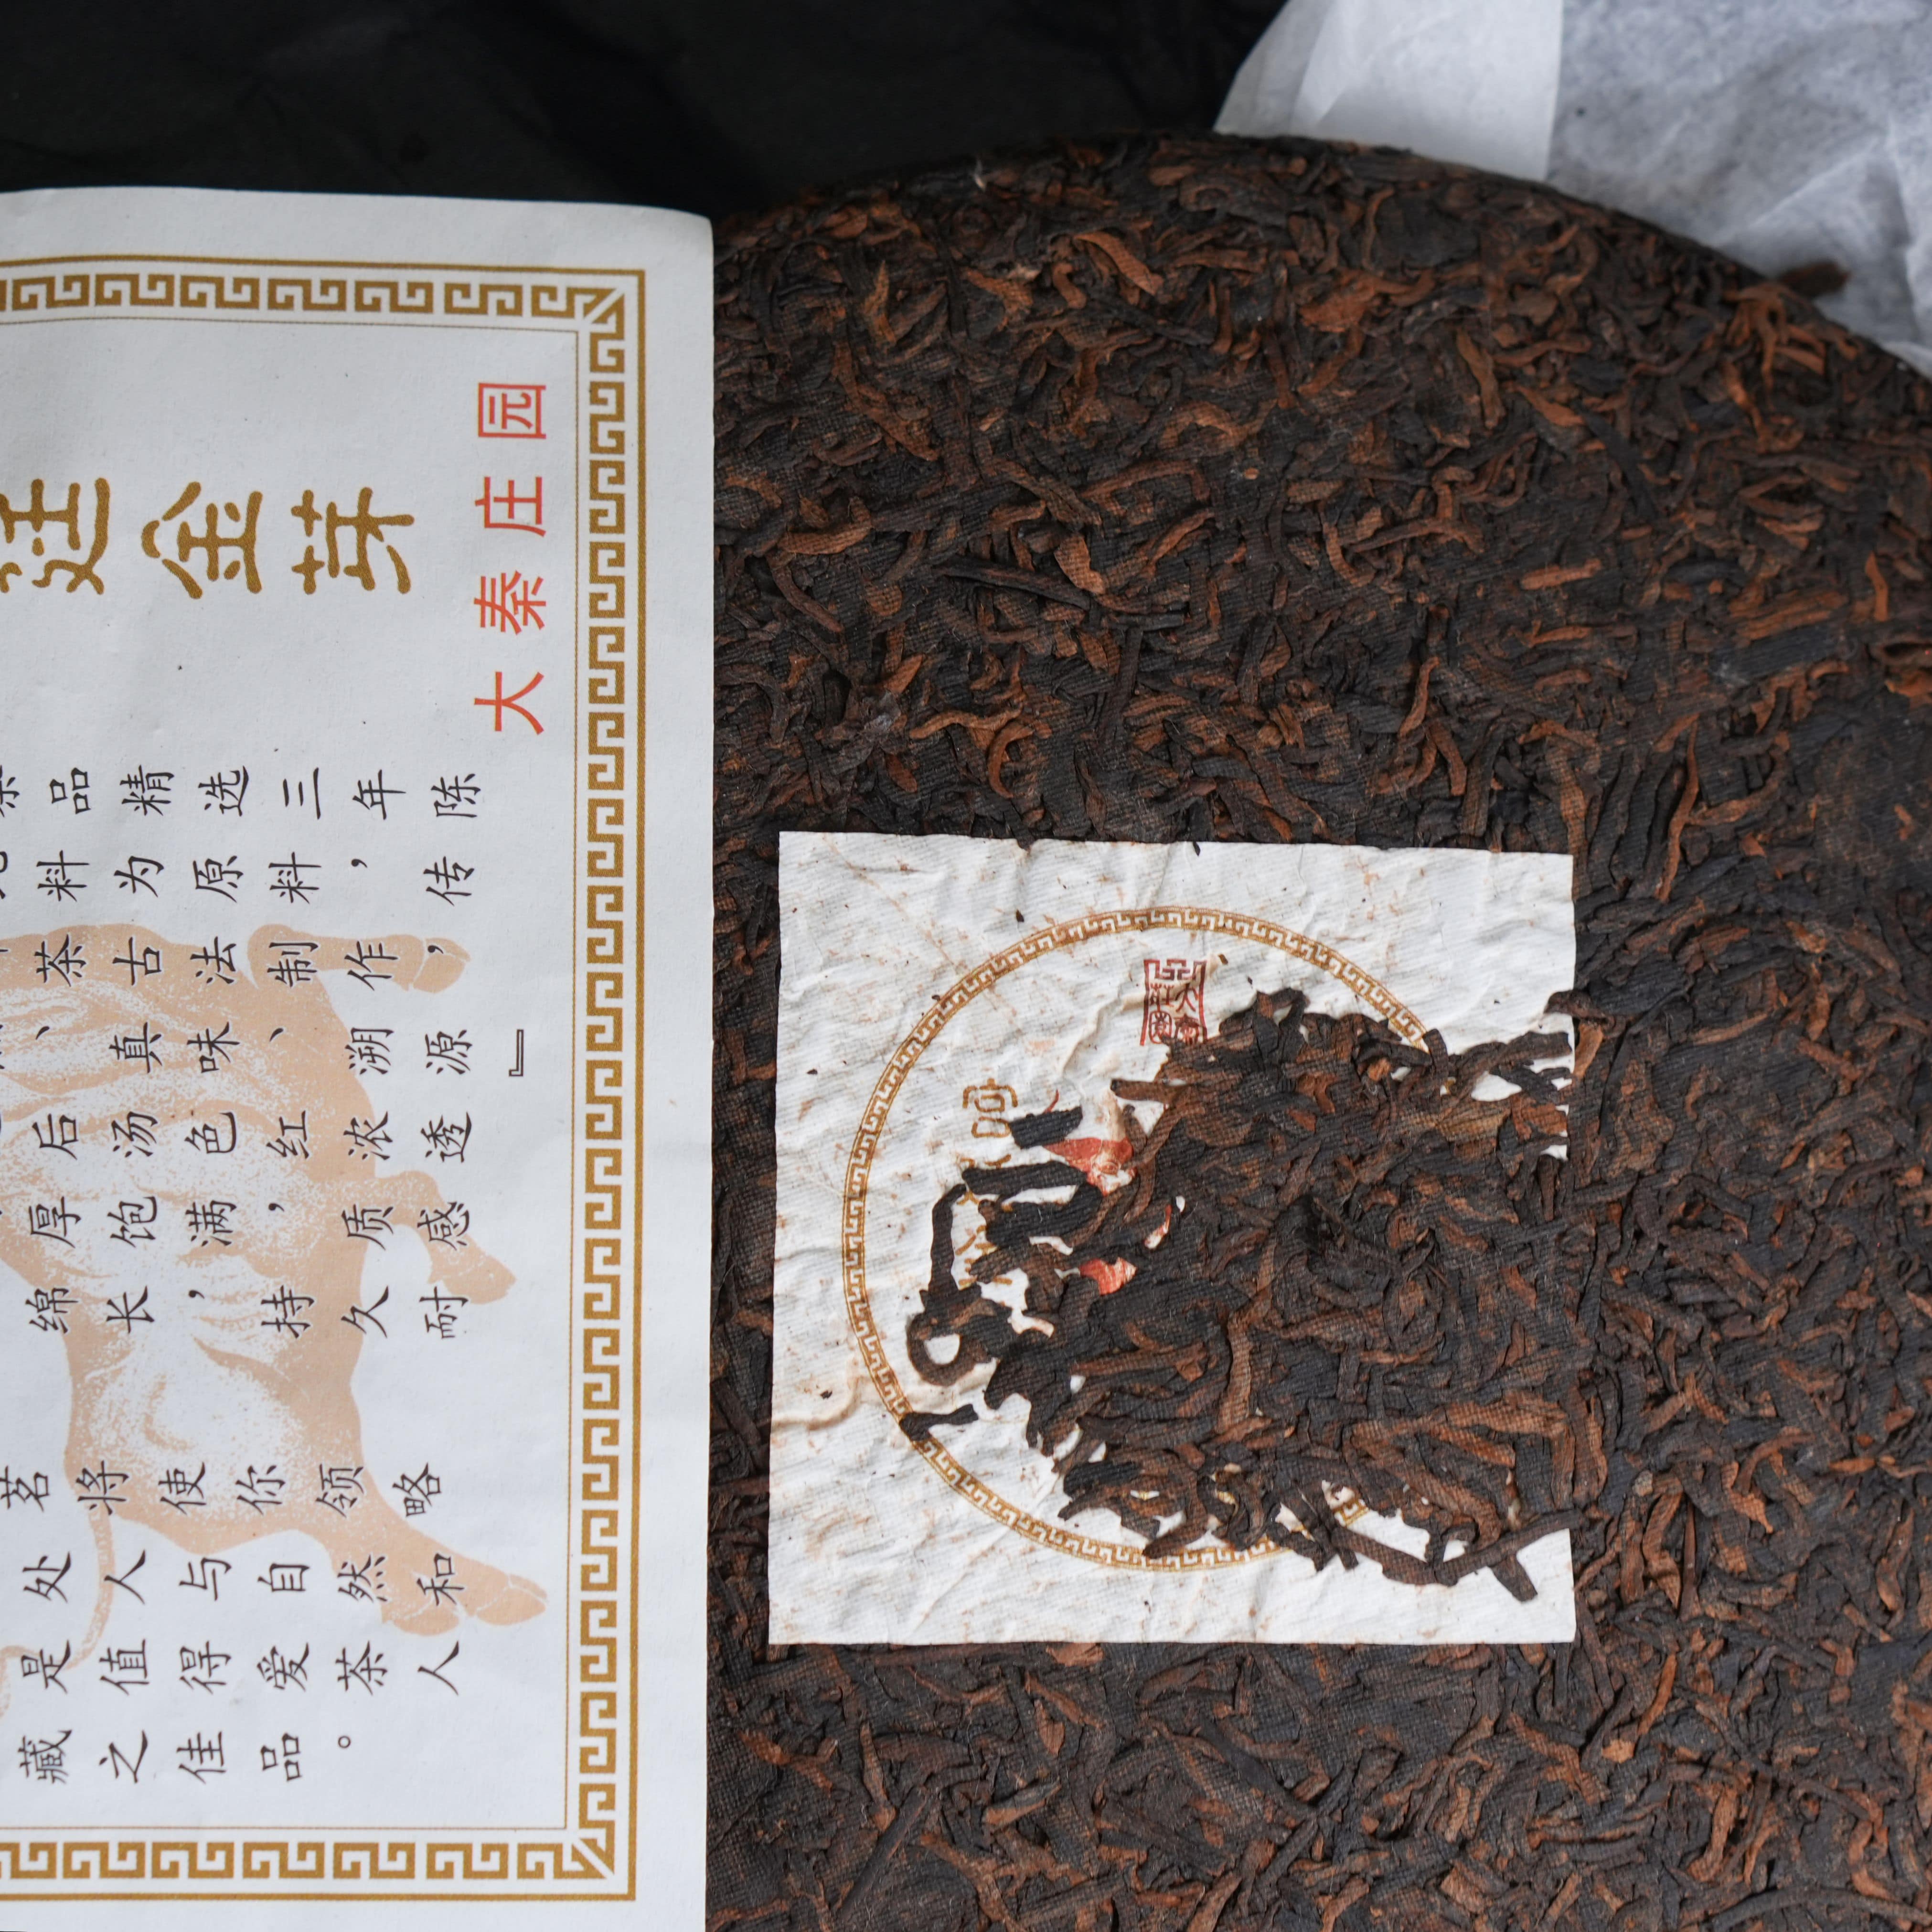 廷金芽
品精选三年陈
料为原料，传
茶古法制作，
、真味、溯源』
后汤色红浓透
厚饱满，质感
绵长，持久耐
茗将使你领略
处人与自然和
是值得爱茶人
藏之佳品。
大秦庄园